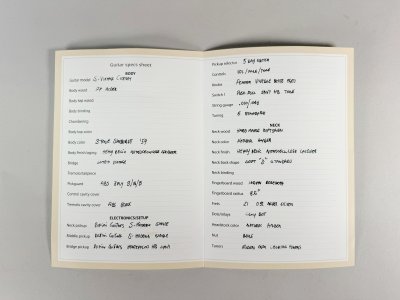 Guitar specs sheet
BODY
Guitar model S-Vintage Classic
Body wood 2P Alder
Body top wood
Body binding
Chambering
Body top color
Body color 3-Tone Sunburst '59
Body finish/aging Heavy Relic Nitrocellulose Lacquer
Bridge
Tremolo/tailpiece
Pickguard ABS 3ply B/W/B
Control cavity cover
Tremolo cavity cover ABS Black
ELECTRONICS/SETUP
Neck pickup Guitars S-Modern Single
Middle pickup Guitars S-Modern Single
Bridge pickup Guitars HB
Pickup selector 5 Way Switch
Controls VOL/TONE/TONE
Knobs Vintage Style Aged
Switch 1 Push Pull Split HB Tone
String gauge .010/.046
Tuning E Standard
NECK
Neck wood Hard Maple
Neck color Amber
Neck finish Heavy Relic Nitrocellulose Lacquer
Neck back shape Soft "C" Standard
Neck binding
Fingerboard wood Indian Rosewood
Fingerboard radius 9,5"
Frets 21
Dots/inlays Clay Dot
Headstock color Natural Amber
Nut Bone
Tuners Locking Tuners